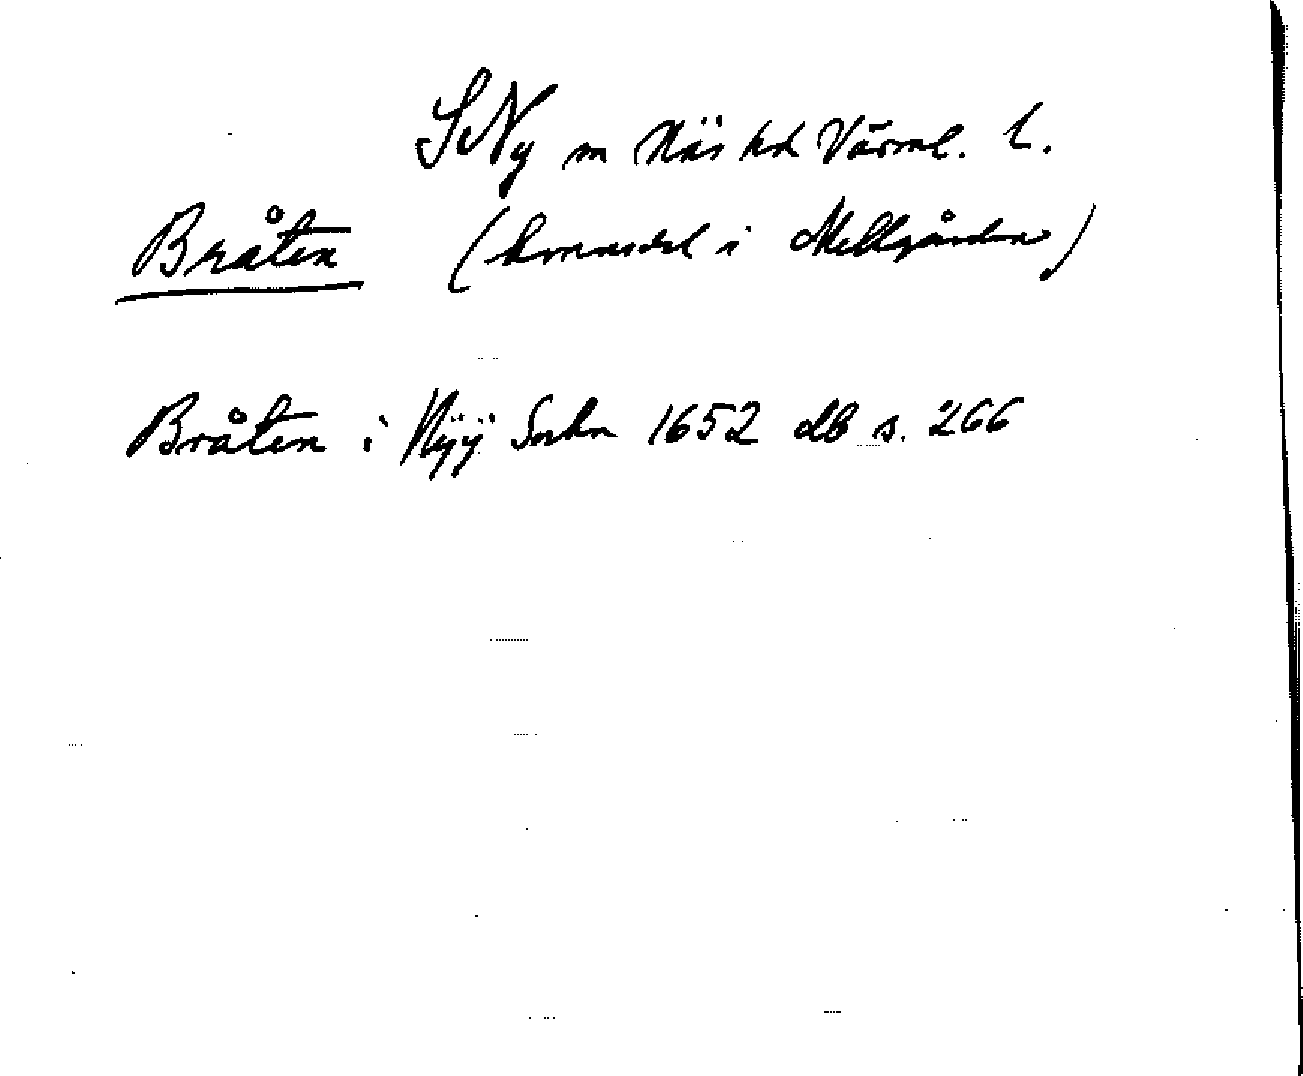 S Ny sn Näs hd Värml. l.
Bråten (hemmansdel i Mellgården)
Bråten i Nÿÿ Sokn 1652 db s. 266